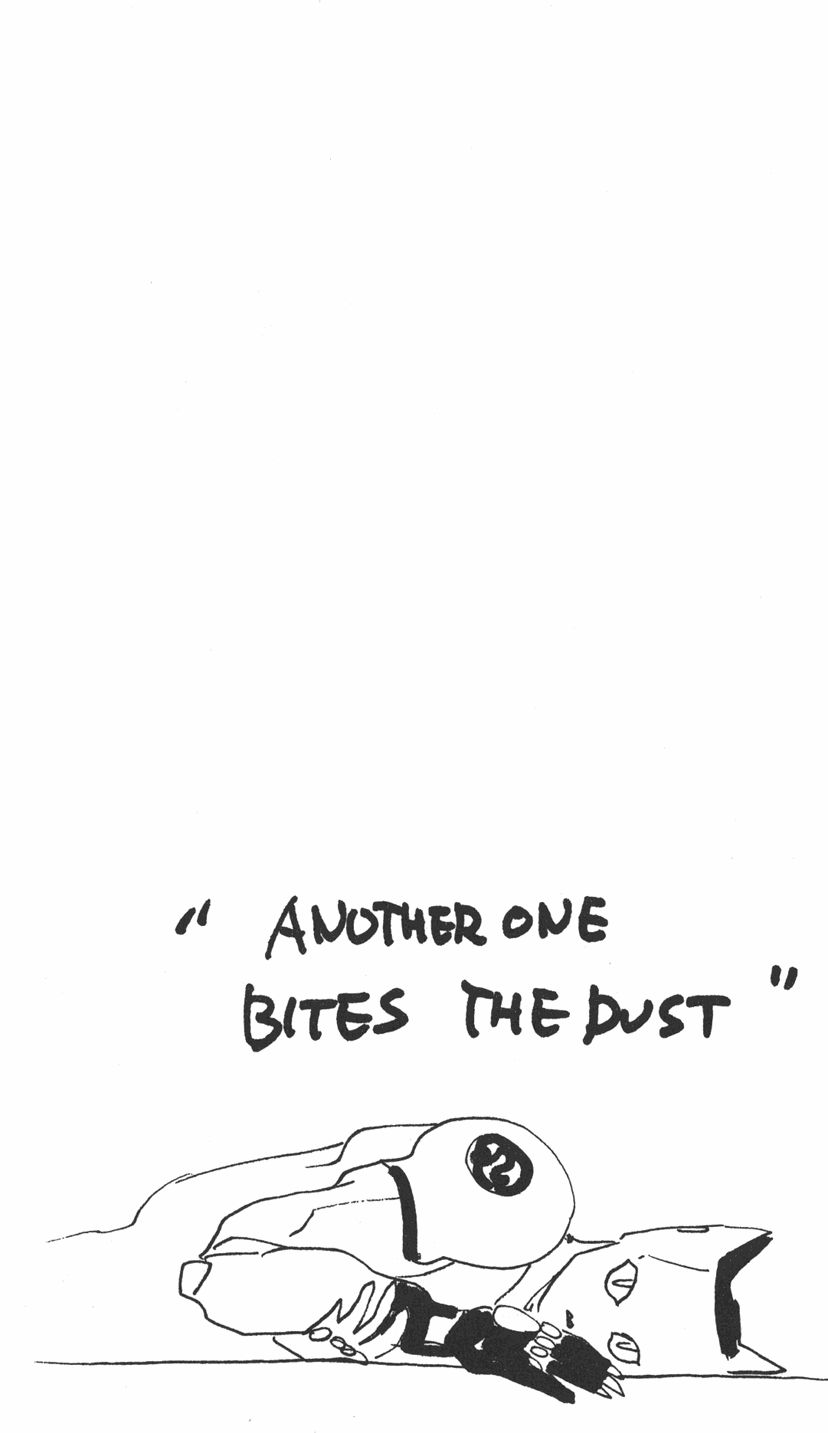 " ANOTHER ONE
BITES THE DUST "